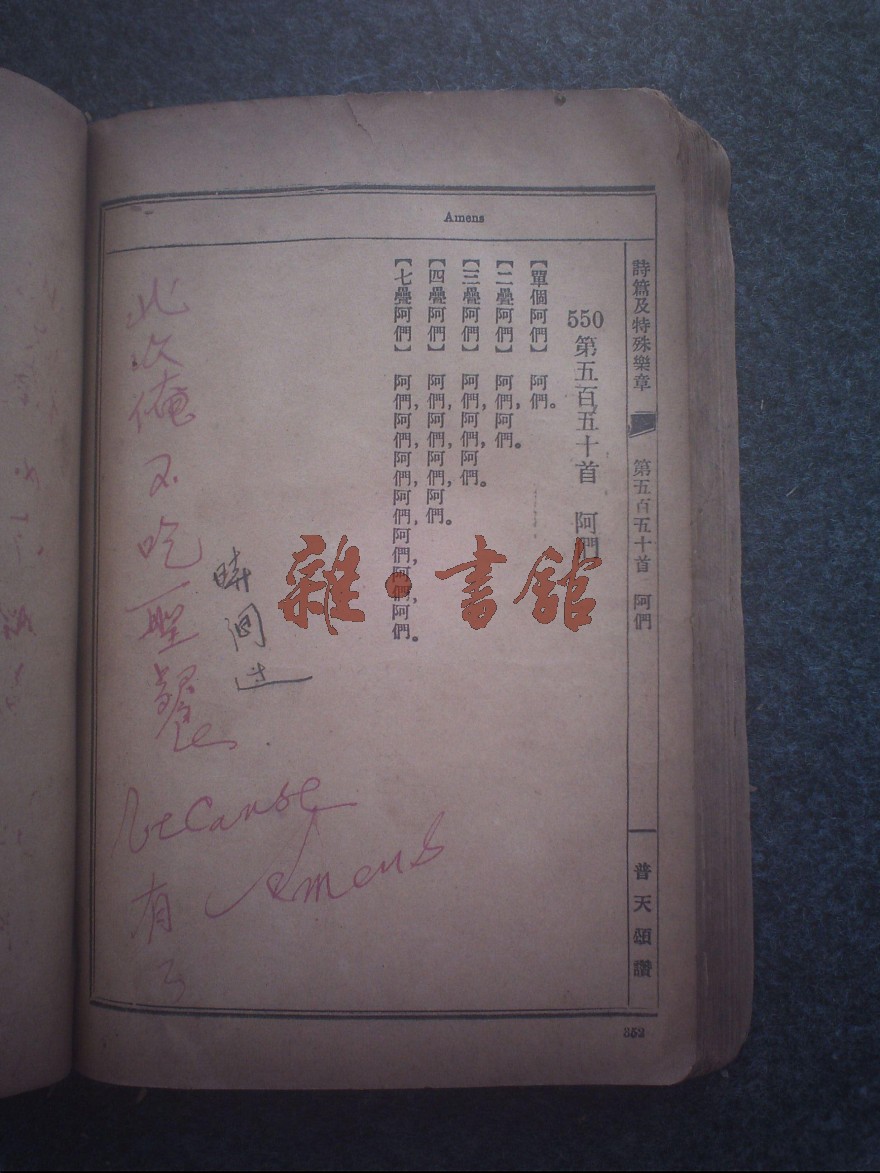 Amens
詩篇及特殊樂章 第五百五十首 阿們
普天頌讚
550
第五百五十首 阿們
【單個阿們】 阿們。
【二疊阿們】 阿們,阿們。
【三疊阿們】 阿們,阿們,阿們。
【四疊阿們】 阿們,阿們,阿們,阿們。
【七疊阿們】 阿們,阿們,阿們,阿們,阿們,阿們,阿們。
雜·書館
此次俺不吃聖餐.
because
有 Amens
352